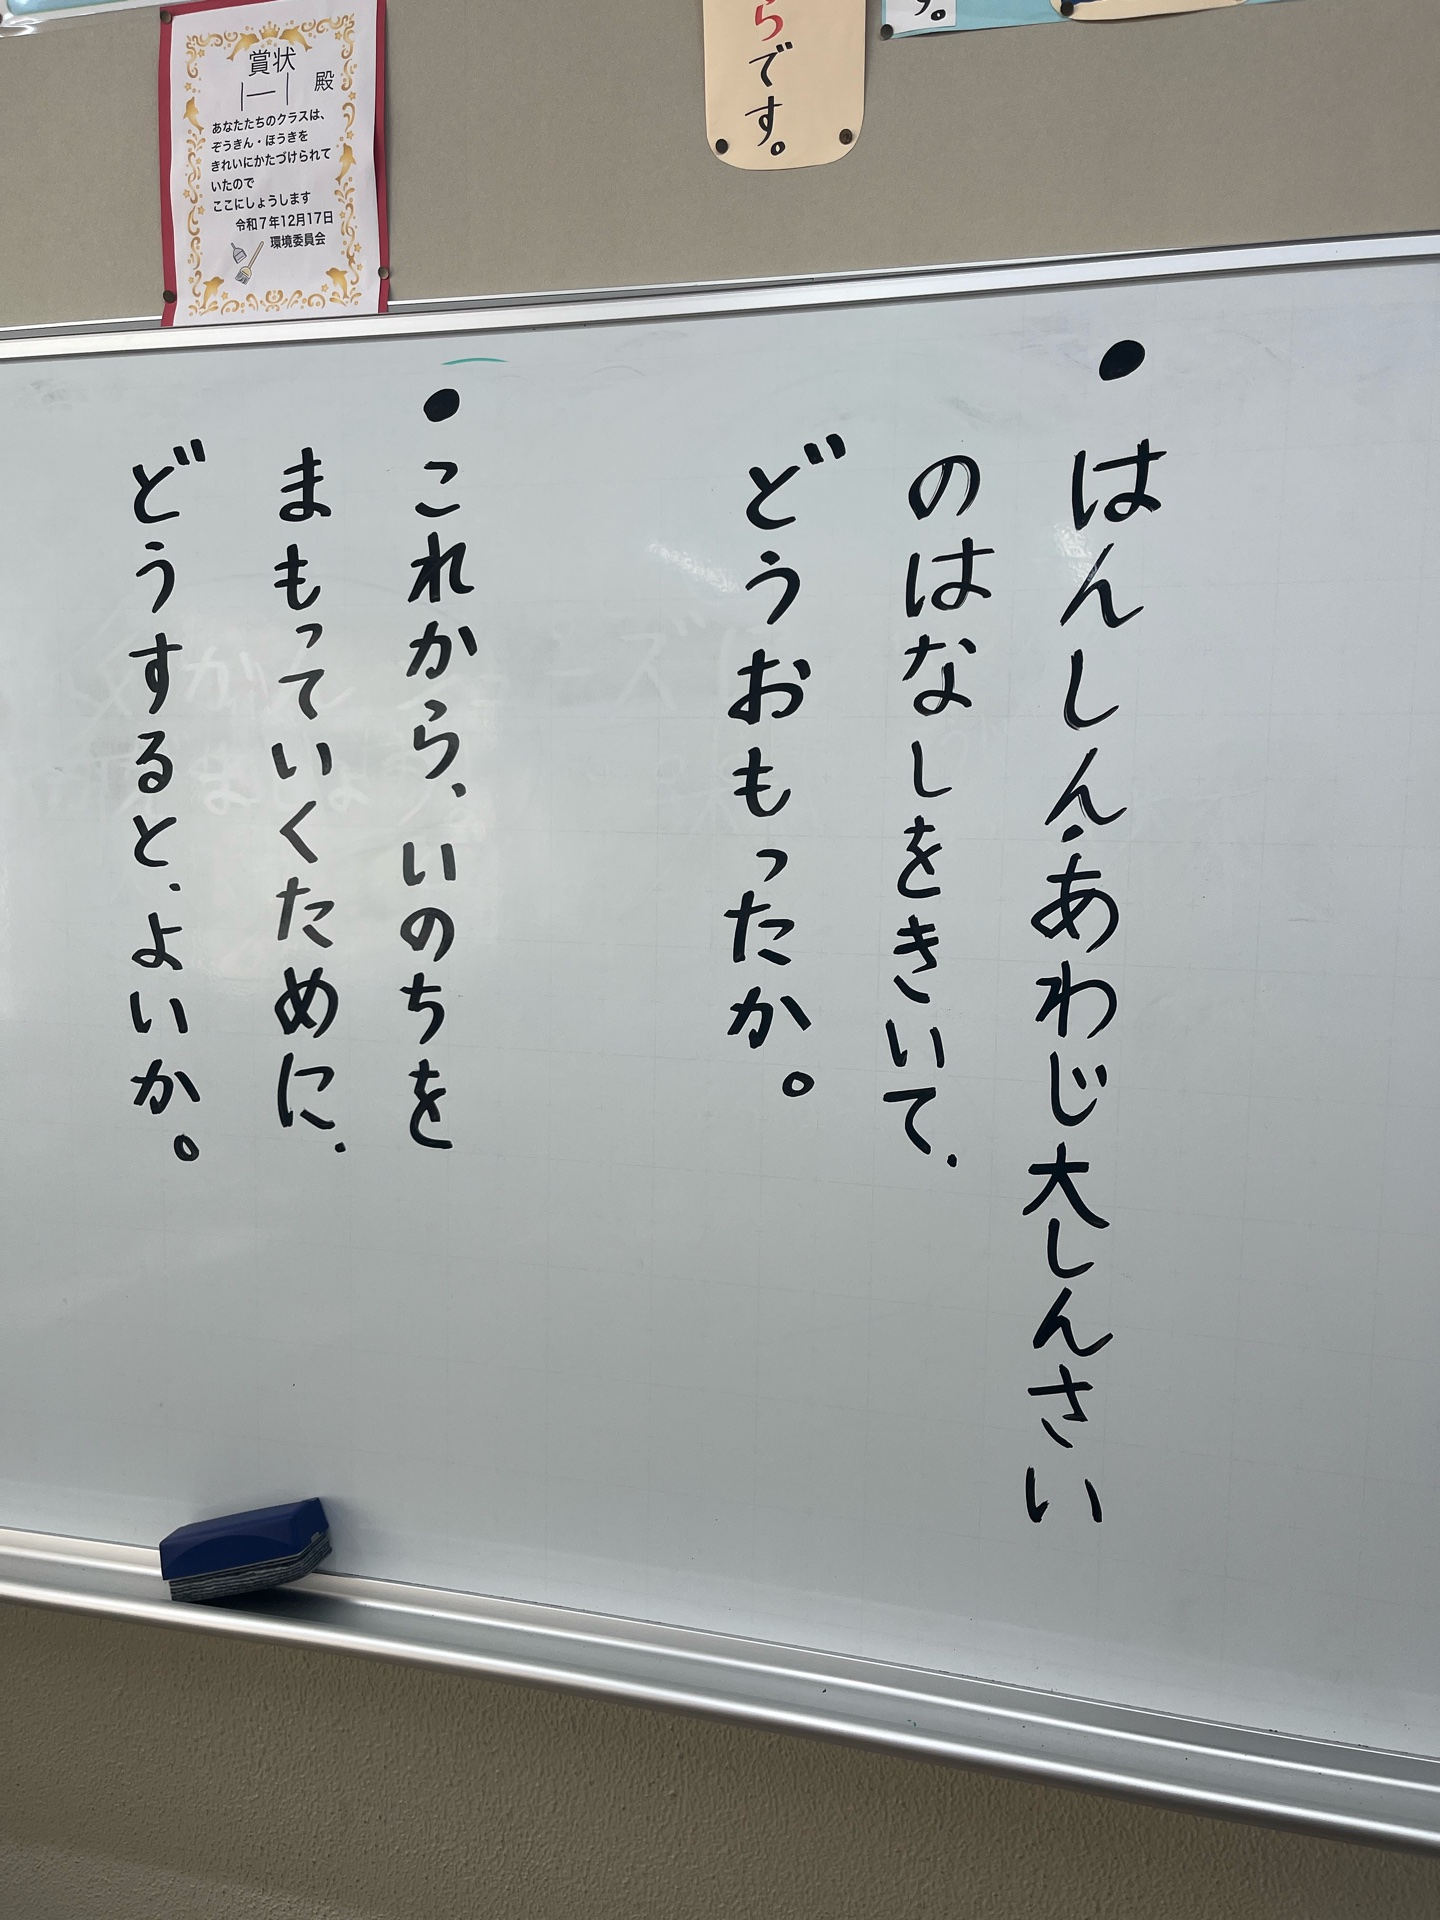 賞状
1-1 殿
あなたたちのクラスは、
ぞうきん・ほうきを
きれいにかたづけられて
いたので
ここにしょうします
令和7年12月17日
環境委員会
らです。
す。
●はんしん・あわじ大しんさい
のはなしをきいて、
どうおもったか。
●これから、いのちを
まもっていくために、
どうすると、よいか。